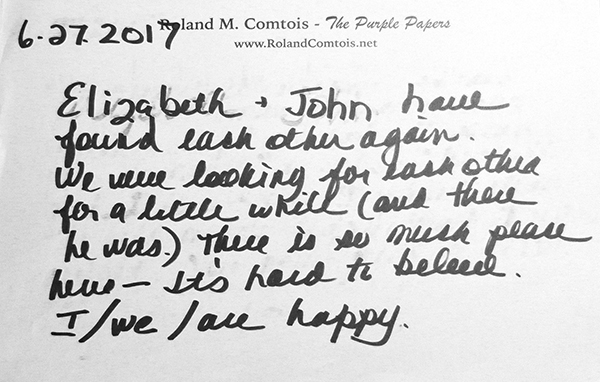 6-27.2017
Roland M. Comtois - The Purple Papers
www.RolandComtois.net
Elizabeth + John have
found each other again.
We were looking for each other
for a little while (and there
he was.) There is so much peace
here - It's hard to believe.
I/we/are happy.